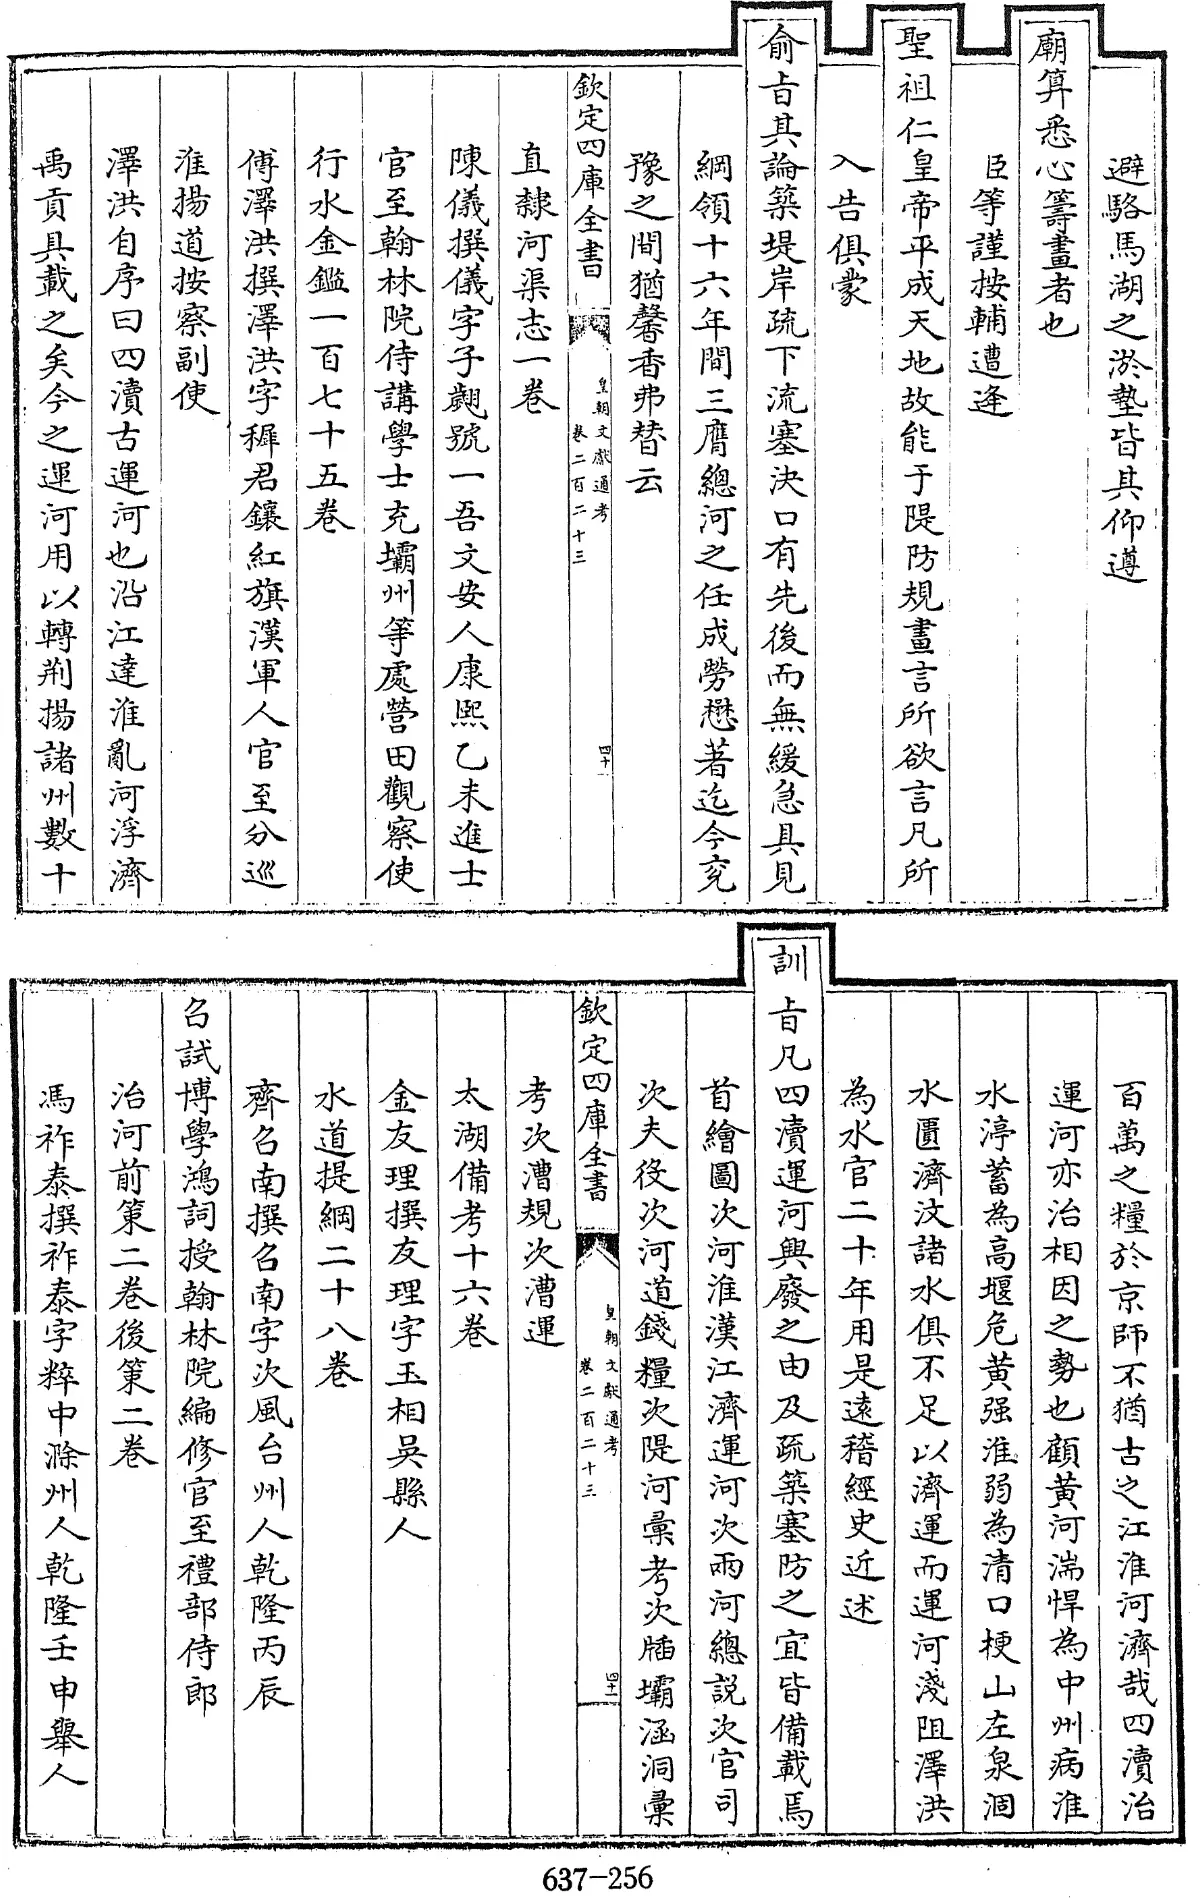 避駱馬湖之淤墊皆其仰遵
廟算悉心籌畫者也
臣等謹按輔遭逢
聖祖仁皇帝平成天地故能于隄防規畫言所欲言凡所
入告俱蒙
俞㫖其論築堤岸疏下流塞決口有先後而無緩急具見
綱領十六年間三膺總河之任成勞懋著迄今兖
豫之間猶馨香弗替云
欽定四庫全書
皇朝文獻通考
卷二百二十三
四十
直隸河渠志一卷
陳儀撰儀字子翽號一吾文安人康熙乙未進士
官至翰林院侍講學士充壩州等處營田觀察使
行水金鑑一百七十五卷
傅澤洪撰澤洪字穉君鑲紅旗漢軍人官至分巡
淮揚道按察副使
澤洪自序曰四瀆古運河也沿江達淮亂河浮濟
禹貢具載之矣今之運河用以轉荆揚諸州數十
百萬之糧於京師不猶古之江淮河濟哉四瀆治
運河亦治相因之勢也顧黄河湍悍為中州病淮
水渟蓄為高堰危黄强淮弱為清口梗山左泉涸
水匱濟汶諸水俱不足以濟運而運河淺阻澤洪
為水官二十年用是遠稽經史近述
訓㫖凡四瀆運河興廢之由及疏築塞防之宜皆備載焉
首繪圖次河淮漢江濟運河次兩河總説次官司
次夫役次河道錢糧次隄河彚考次牐壩涵洞彚
欽定四庫全書
皇朝文獻通考
卷二百二十三
四十一
考次漕規次漕運
太湖備考十六卷
金友理撰友理字玉相吳縣人
水道提綱二十八卷
齊召南撰召南字次風台州人乾隆丙辰
召試博學鴻詞授翰林院編修官至禮部侍郎
治河前策二卷後策二卷
馮祚泰撰祚泰字粹中滁州人乾隆壬申舉人
637-256